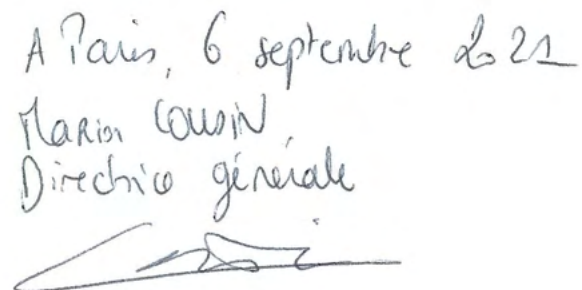 A Paris, 6 septembre 2021
Marion COUSIN
Directrice générale